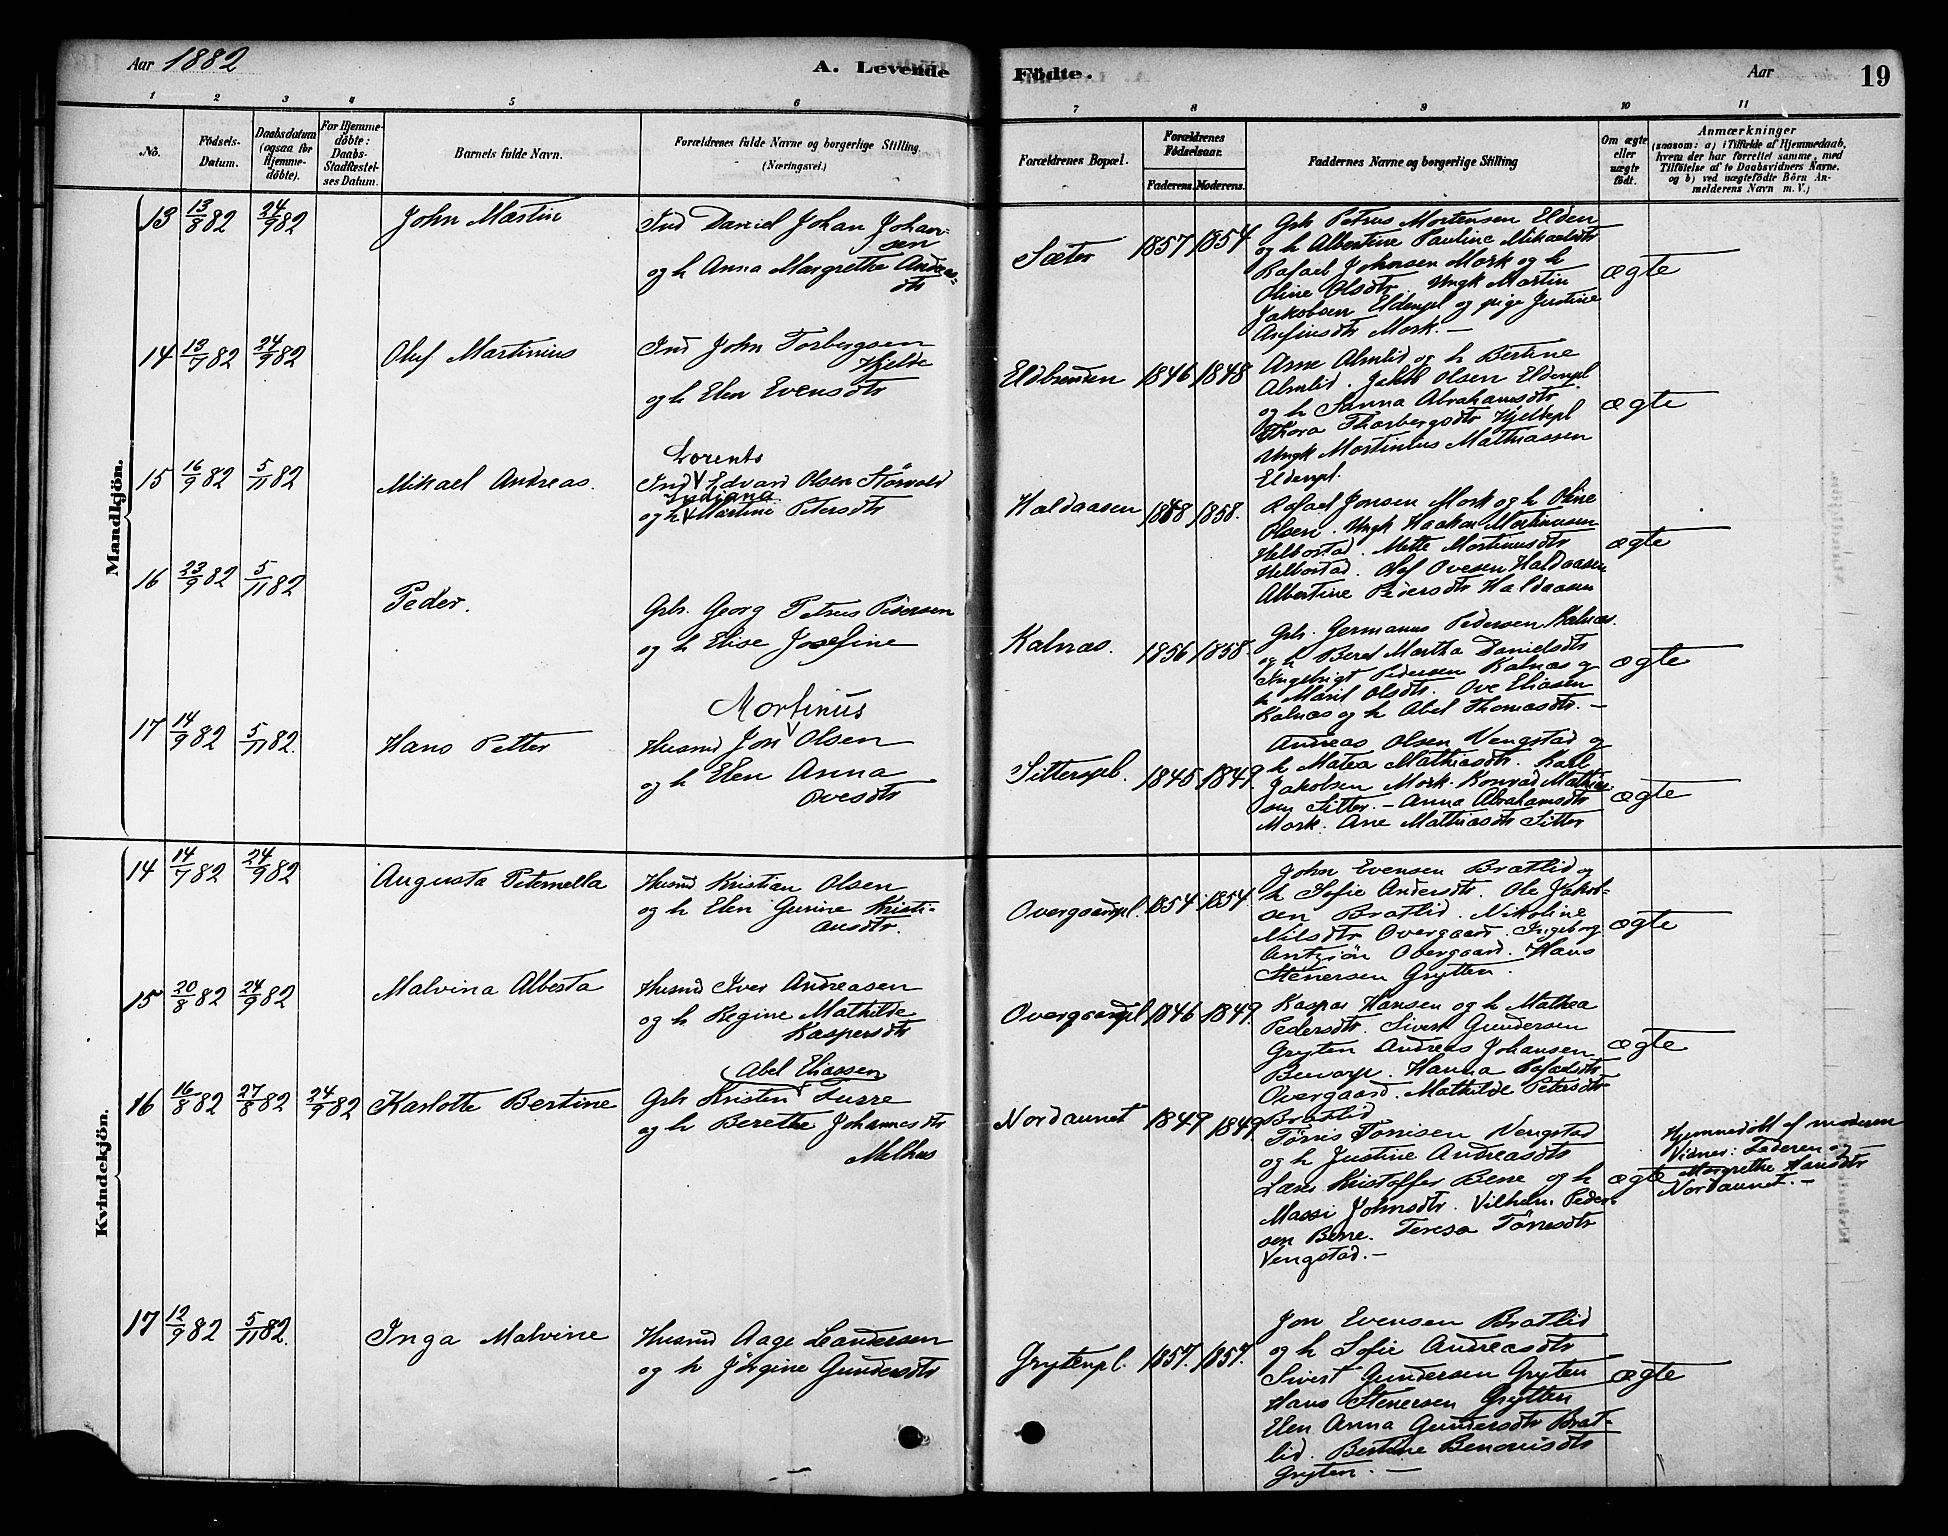 Aar 1882
A. Levende
Födte.
Aar
19
1 2 3 4 5 6 7 8 9 10 11
No.
Födsels-Datum.
Daabsdatum (ogsaa for Hjemme-döbte).
For Hjemme-döbte: Daabs-Stadfæstel-ses Datum.
Barnets fulde Navn.
Forældrenes fulde Navne og borgerlige Stilling.
(Næringsvei.)
Forældrenes Bopæl.
Forældrenes Födselsaar.
Faderens. Moderens.
Faddernes Navne og borgerlige Stilling
Om ægte eller uægte födt.
Anmærkninger
(saasom: a) i Tilfælde af Hjemmedaab,
hvem der har forrettet samme, med
Tilföielse af to Daabsvidners Navne,
og b) ved uægtefödte Börn An-
melderens Navn m. V.)
Mandkjön.
13 13/8 82 24/9 82 John Martin
Ind Daniel Johan Johan-
sen
og h Anna Margrethe Andreas-
dtr
Sæter 1857 1854
Grb Petrus Mortensen Elden
og h Albertine Pauline Mikaelsdtr
Rafael Johnsen Mork og h
Oline Olsdtr. Ungk Martin
Jakobsen Eldenpl og pige Justine
Arfinsdtr Mork.—
ægte
14 13/7 82 24/9 82 Oluf Martinius
Ind John Torbergsen
Hjelde
og h Elen Evensdtr
Eldbrenden 1846 1848
Arne Almlid og h Bertine
Almlid. Jakob Olsen Eldenpl
og h Sanna Abrahamsdtr
Thora Thorbergsdtr Hjeldepl
Ungk Mortinius Mathiassen
Eldenpl.
ægte
15 16/9 82 5/11 82 Mikael Andreas.
Lorents
Ind Edvard Olsen Störvold
Indiana
og h Martine Petersdtr
Haldaasen 1858.
Rafael Jonsen Mork og h Oline
Olsen. Ungk Haakon Mortinusen
Helbostad. Mette Mortinusdtr
Helbostad. Olaf Ovesen Haldaasen
Albertine Pedersdtr Haldaasen
ægte
16 23/9 82 5/11 82 Peder.
Grb. Georg Petrus Pedersen
og h Elise Josefine
Kalnæs. 1856 1858.
Grb. Germanus Pedersen Kalnæs.
og h Beret Martha Danielsdtr
Ingebrigt Pedersen Kalnæs og
h Marit Olsdtr. Ove Eliasen
Kalnæs og h Abel Thomasdtr.—
ægte
17 14/9 82 5/11 82. Hans Petter
Mortinus
Husmd Jon Olsen
og h Elen Anna
Ovesdtr
Sitterpl. 1845 1849.
Andreas Olsen Vengstad og
h Matea Mathiasdtr. Karl
Jakobsen Mork. Konrad Mathias-
sen Sitter.— Anna Abrahamsdtr
Mork. Ane Mathiasdtr Sitter
ægte
Kvindekjön.
14 14/7 82 24/9 82 Augusta Peternella
Husmd Kristian Olsen
og h Elen Gurine Kristi-
ansdtr.
Overgaardpl. 1854 1854.
John Evensen Bratlid og
h Sofie Andersdtr. Ole Jakob-
sen Bratlid. Nikoline
Nilsdtr Overgaard. Ingeborg
Overgaard. Hans
Stenersen Gryten.
ægte
15 20/8 82 24/9 82 Malvina Alberta
Husmd Iver Andreasen
og h Regine Mathilde
Kaspersdtr
Overgaardpl 1846 1849.
Kaspar Hansen og h Mathea
Pedersdtr. Sivert Gundersen
Gryten Andreas Johansen
Hanna
Overgaard. Mathilde Petersdtr
Bratlid
ægte
16 16/8 82 27/8 82 24/9 82 Karlotte Bertine
Abel Eliassen
Grb Kristen Furre
og h Berethe Johannesdtr
Melhus
Nordaunet 1849 1849
Törris Törrisen Vengstad
og h Justine Andreasdtr
Lars Kristoffer Bene og h
Massi Johnsdtr. Vilhelm Peder-
sen Bene. Teresa Törresdtr
Vengstad.—
ægte
Hjemmedöbt af moderen
Vidner: Faderen og
Margrethe Hansdtr
Nordaunet.—
17 12/9 82 5/11 82. Inga Malvine
Husmd Aage Leandersen
og h Jörgine Gundersdtr
Grytenpl. 1857. 1857.
Jon Evensen Bratlid
og h Sofie Andreasdtr
Sivert Gundersen Gryten
Hans Stenersen Grytten
Elen Anna Gundersdtr Brat-
lid. Bertine Benonisdtr
Gryten.—
ægte